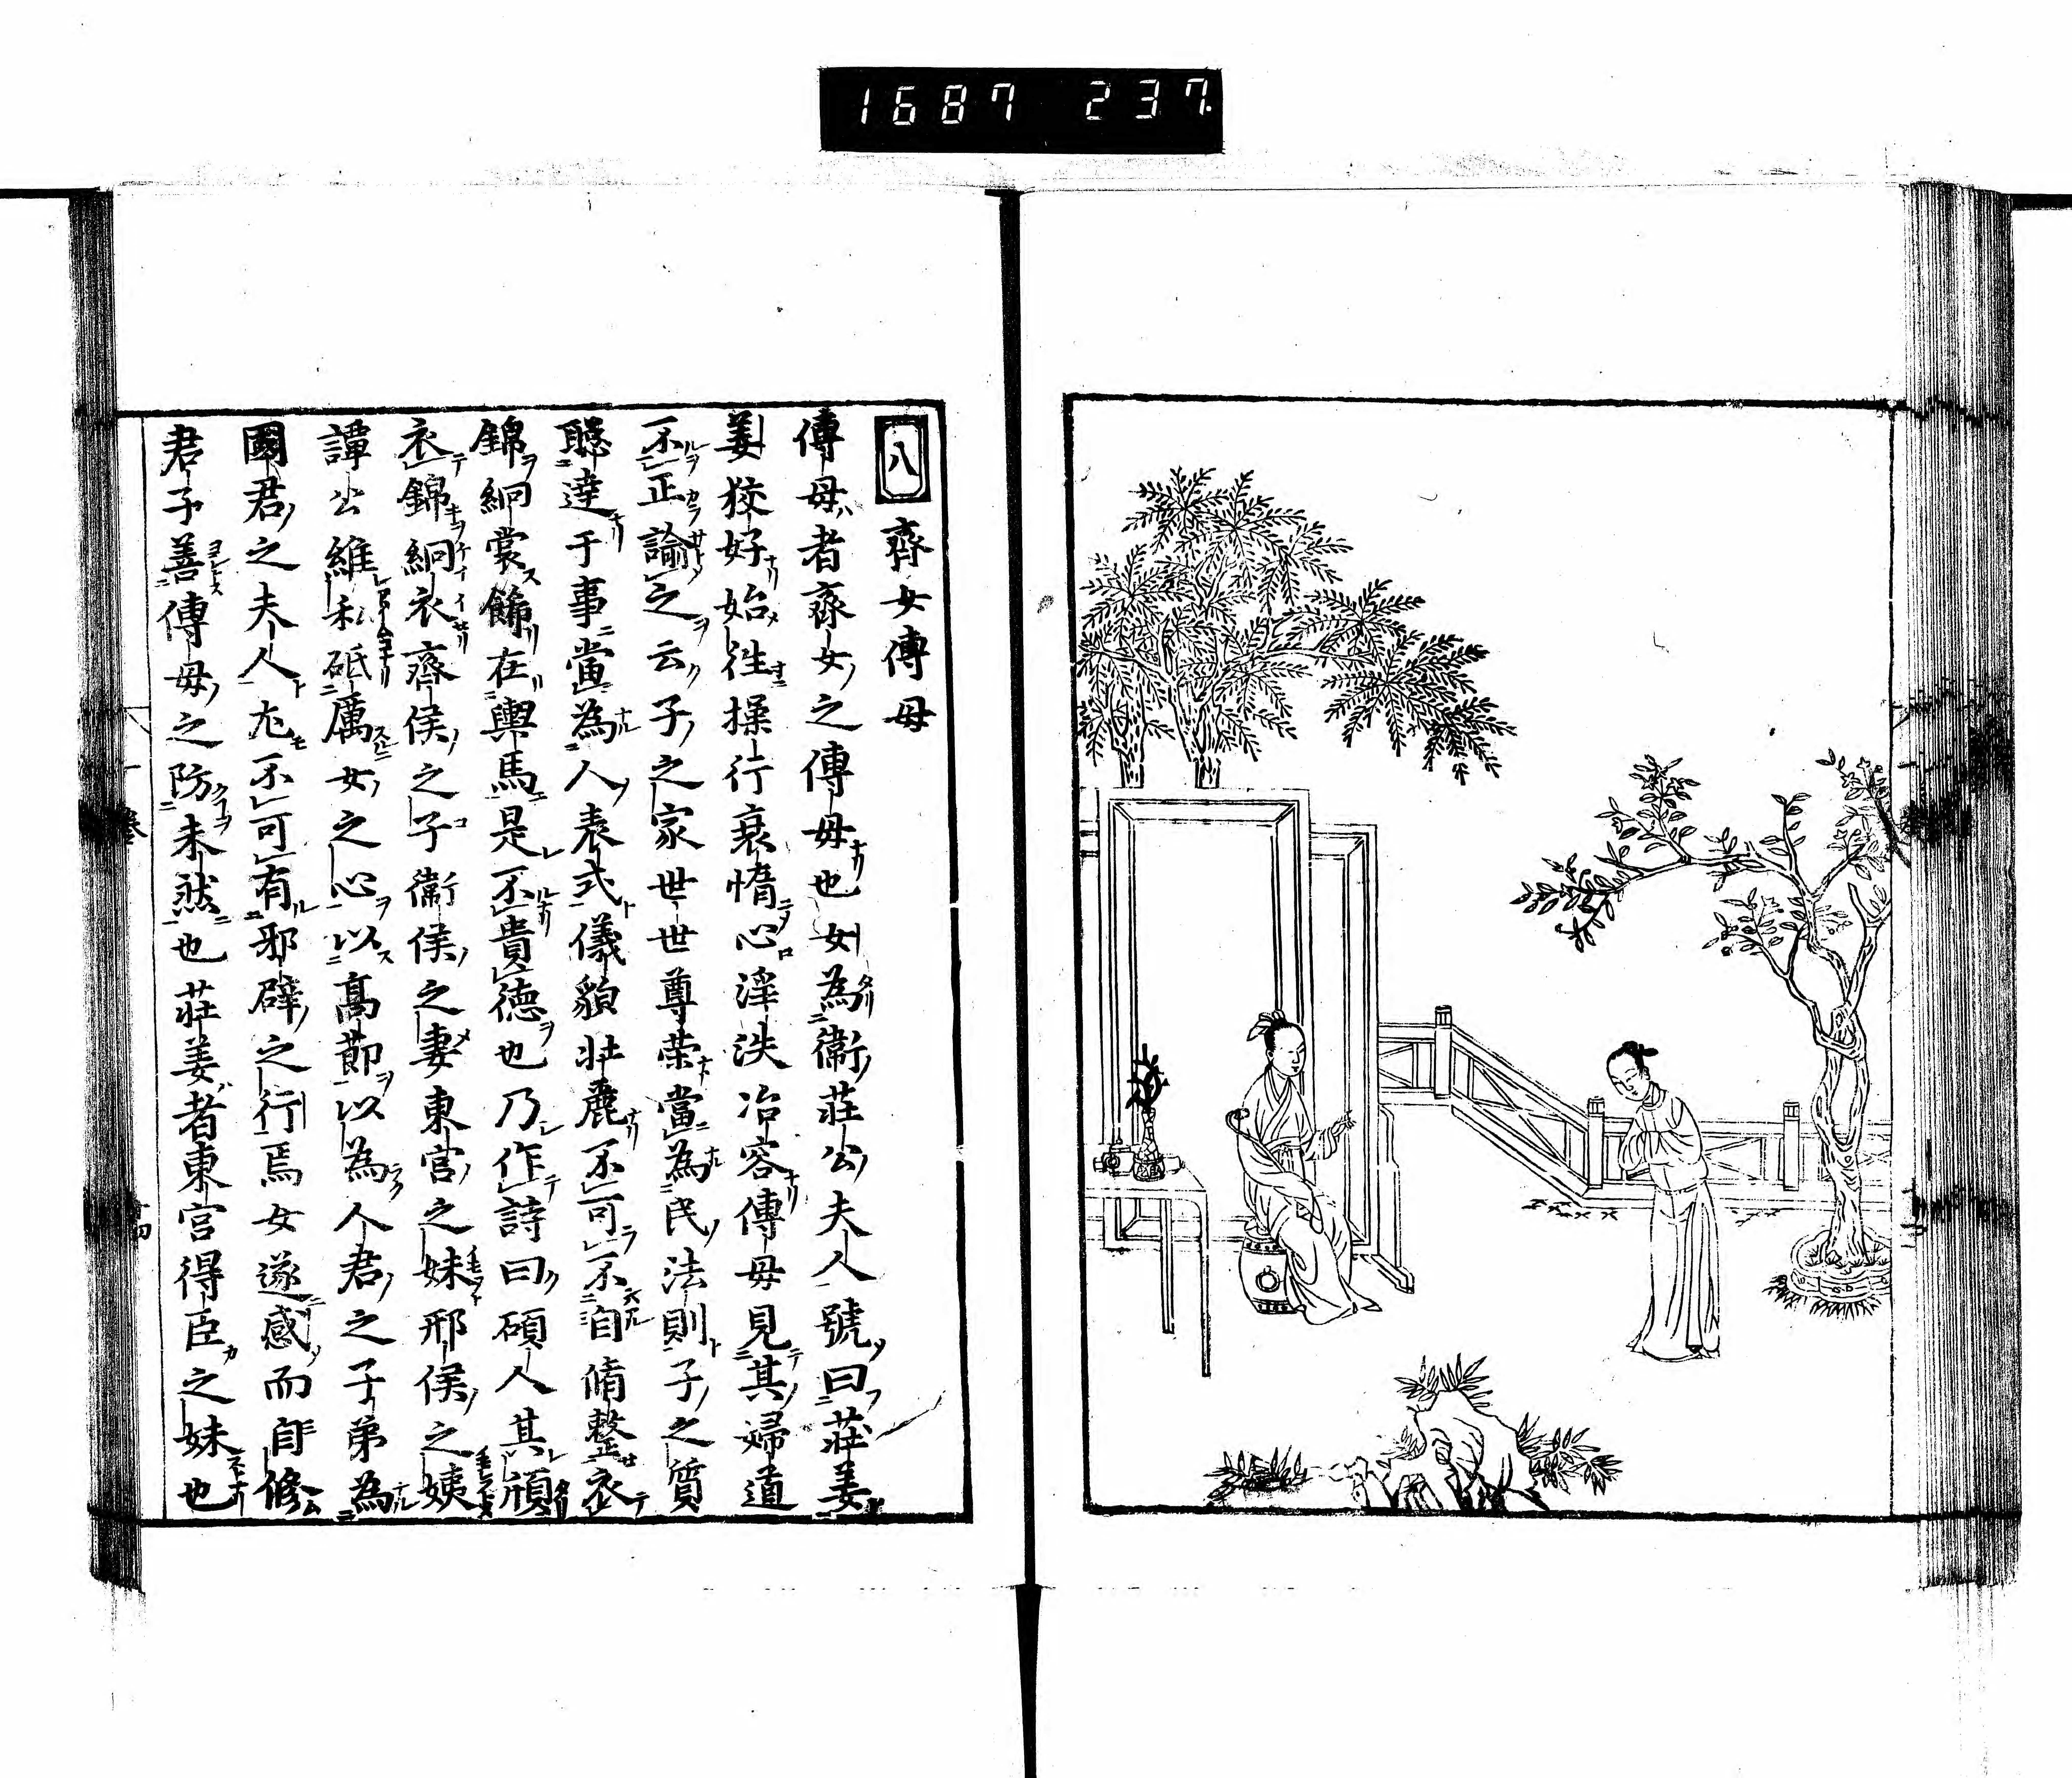 1687 237
八 齊女傅母
傅母者齊女之傅母也女為衛莊公夫人號曰莊姜
姜狡好始往操行衰惰心淫泆冶容傅母見其婦道
不正諭之云子之家世世尊荣當為民法則子之質
聰達于事當為人表式儀貌壯麗不可不自脩整衣
錦絅裳飾在輿馬是不貴德也乃作詩曰碩人其頎
衣錦絅衣齊侯之子衞侯之妻東宮之妹邢侯之姨
譚公維私砥厲女之心以高節以為人君之子弟為
國君之夫人尤不可有邪辟之行焉女遂感而自修
君子善傅母之防未然也莊姜者東宮得臣之妹也